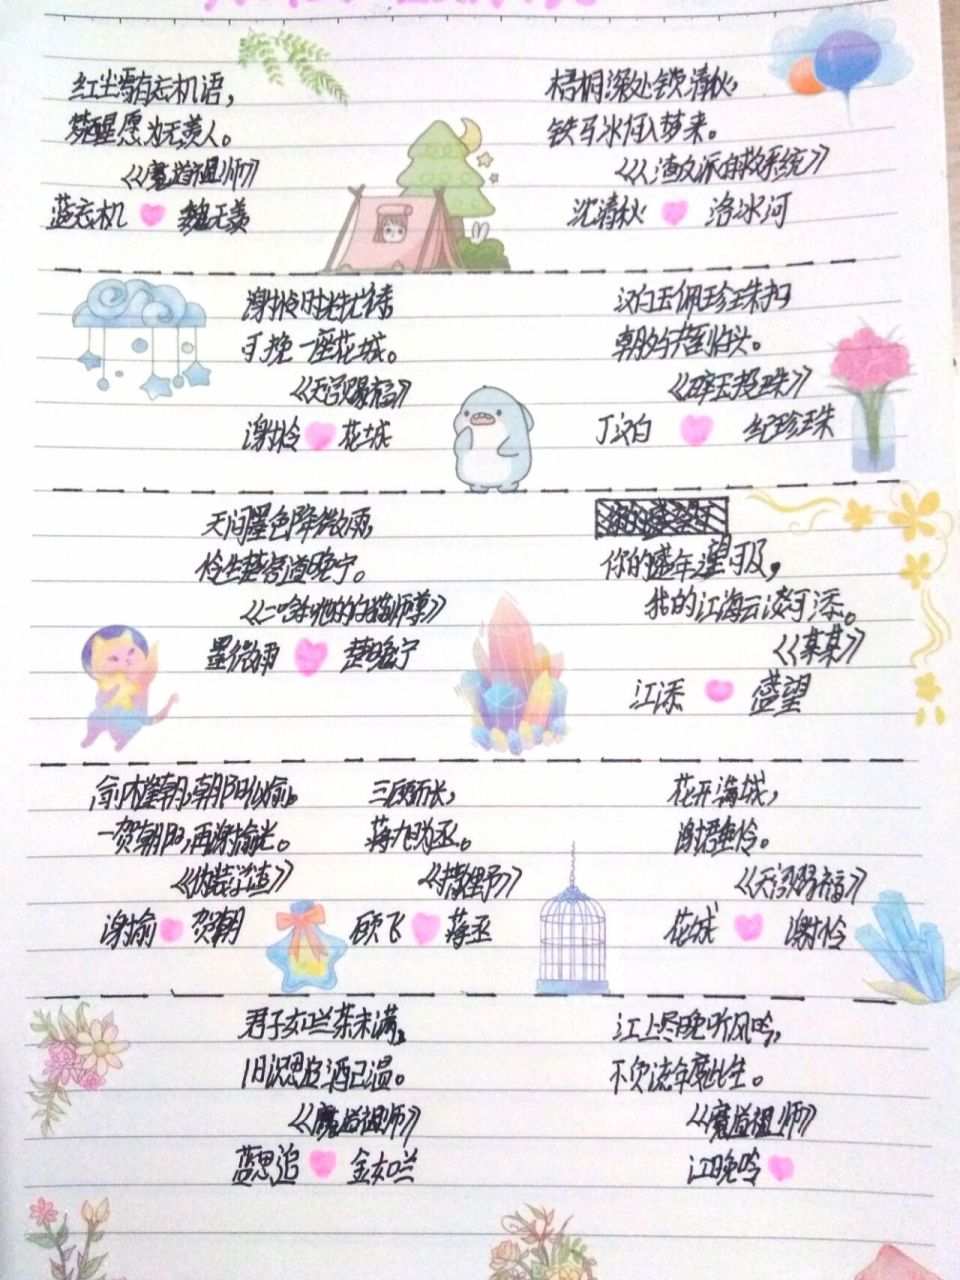 红尘焉有忘机语，
梦醒愿为无羡人。
《魔道祖师》
蓝忘机 魏无羡
梧桐深处锁清秋，
铁马冰河入梦来。
《人渣反派自救系统》
沈清秋 洛冰河
可挽一座花城。
《天官赐福》
谢怜 花城
汉白玉佩珍珠扣
《碎玉投珠》
丁汉白 纪珍珠
天问墨色降微雨，
怜生楚客道晚宁。
《二哈和他的白猫师尊》
墨微雨 楚晚宁
你的盛年望可及，
我的江海云淡可添。
《某某》
江添 盛望
一贺朝阳，再谢愉光。
《伪装学渣》
谢俞 贺朝
三顾而长，
蒋九为丞。
《撒野》
顾飞 蒋丞
花开满城，
《天官赐福》
花城 谢怜
君子如兰茶未满，
旧识思追酒已温。
《魔道祖师》
蓝思追 金如兰
江上尽晚听风吟，
不负流年度此生。
《魔道祖师》
江晚吟